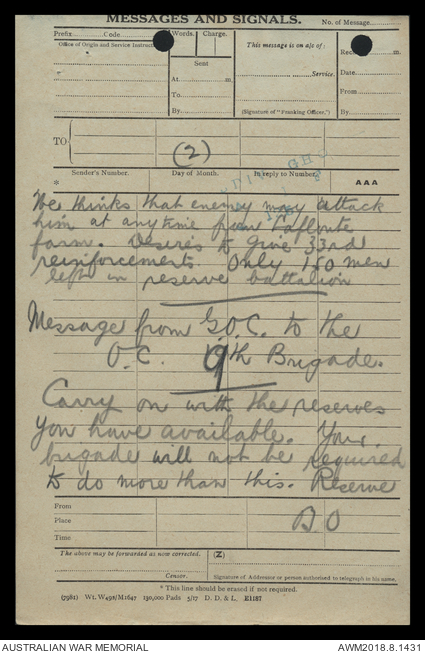 MESSAGES AND SIGNALS.
No. of Message
Prefix Code
Words. Charge.
This message is on a/c of:
Office of Origin and Service Instruct
Sent
At m.
To
By
Service.
(Signature of "Franking Officer.")
m.
Date
From
By
TO
(2)
Sender's Number. Day of Month. In reply to Number.
* AAA
He thinks that enemy may attack
him at anytime from
farm. Desires to give 33rd
reinforcements. Only 150 men
left in reserve battalion
Message from G.O.C. to the
O.C. 9th Brigade.
Carry on with the reserves
you have available. Your
brigade will not be required
to do more than this. Reserve
From
Place
Time
The above may be forwarded as now corrected. (Z)
Censor. Signature of Addressor or person authorised to telegraph in his name.
* This line should be erased if not required.
(7981) Wt. W492/M1647 130,000 Pads 5/17 D. D. & L. E1187
AUSTRALIAN WAR MEMORIAL AWM2018.8.1431